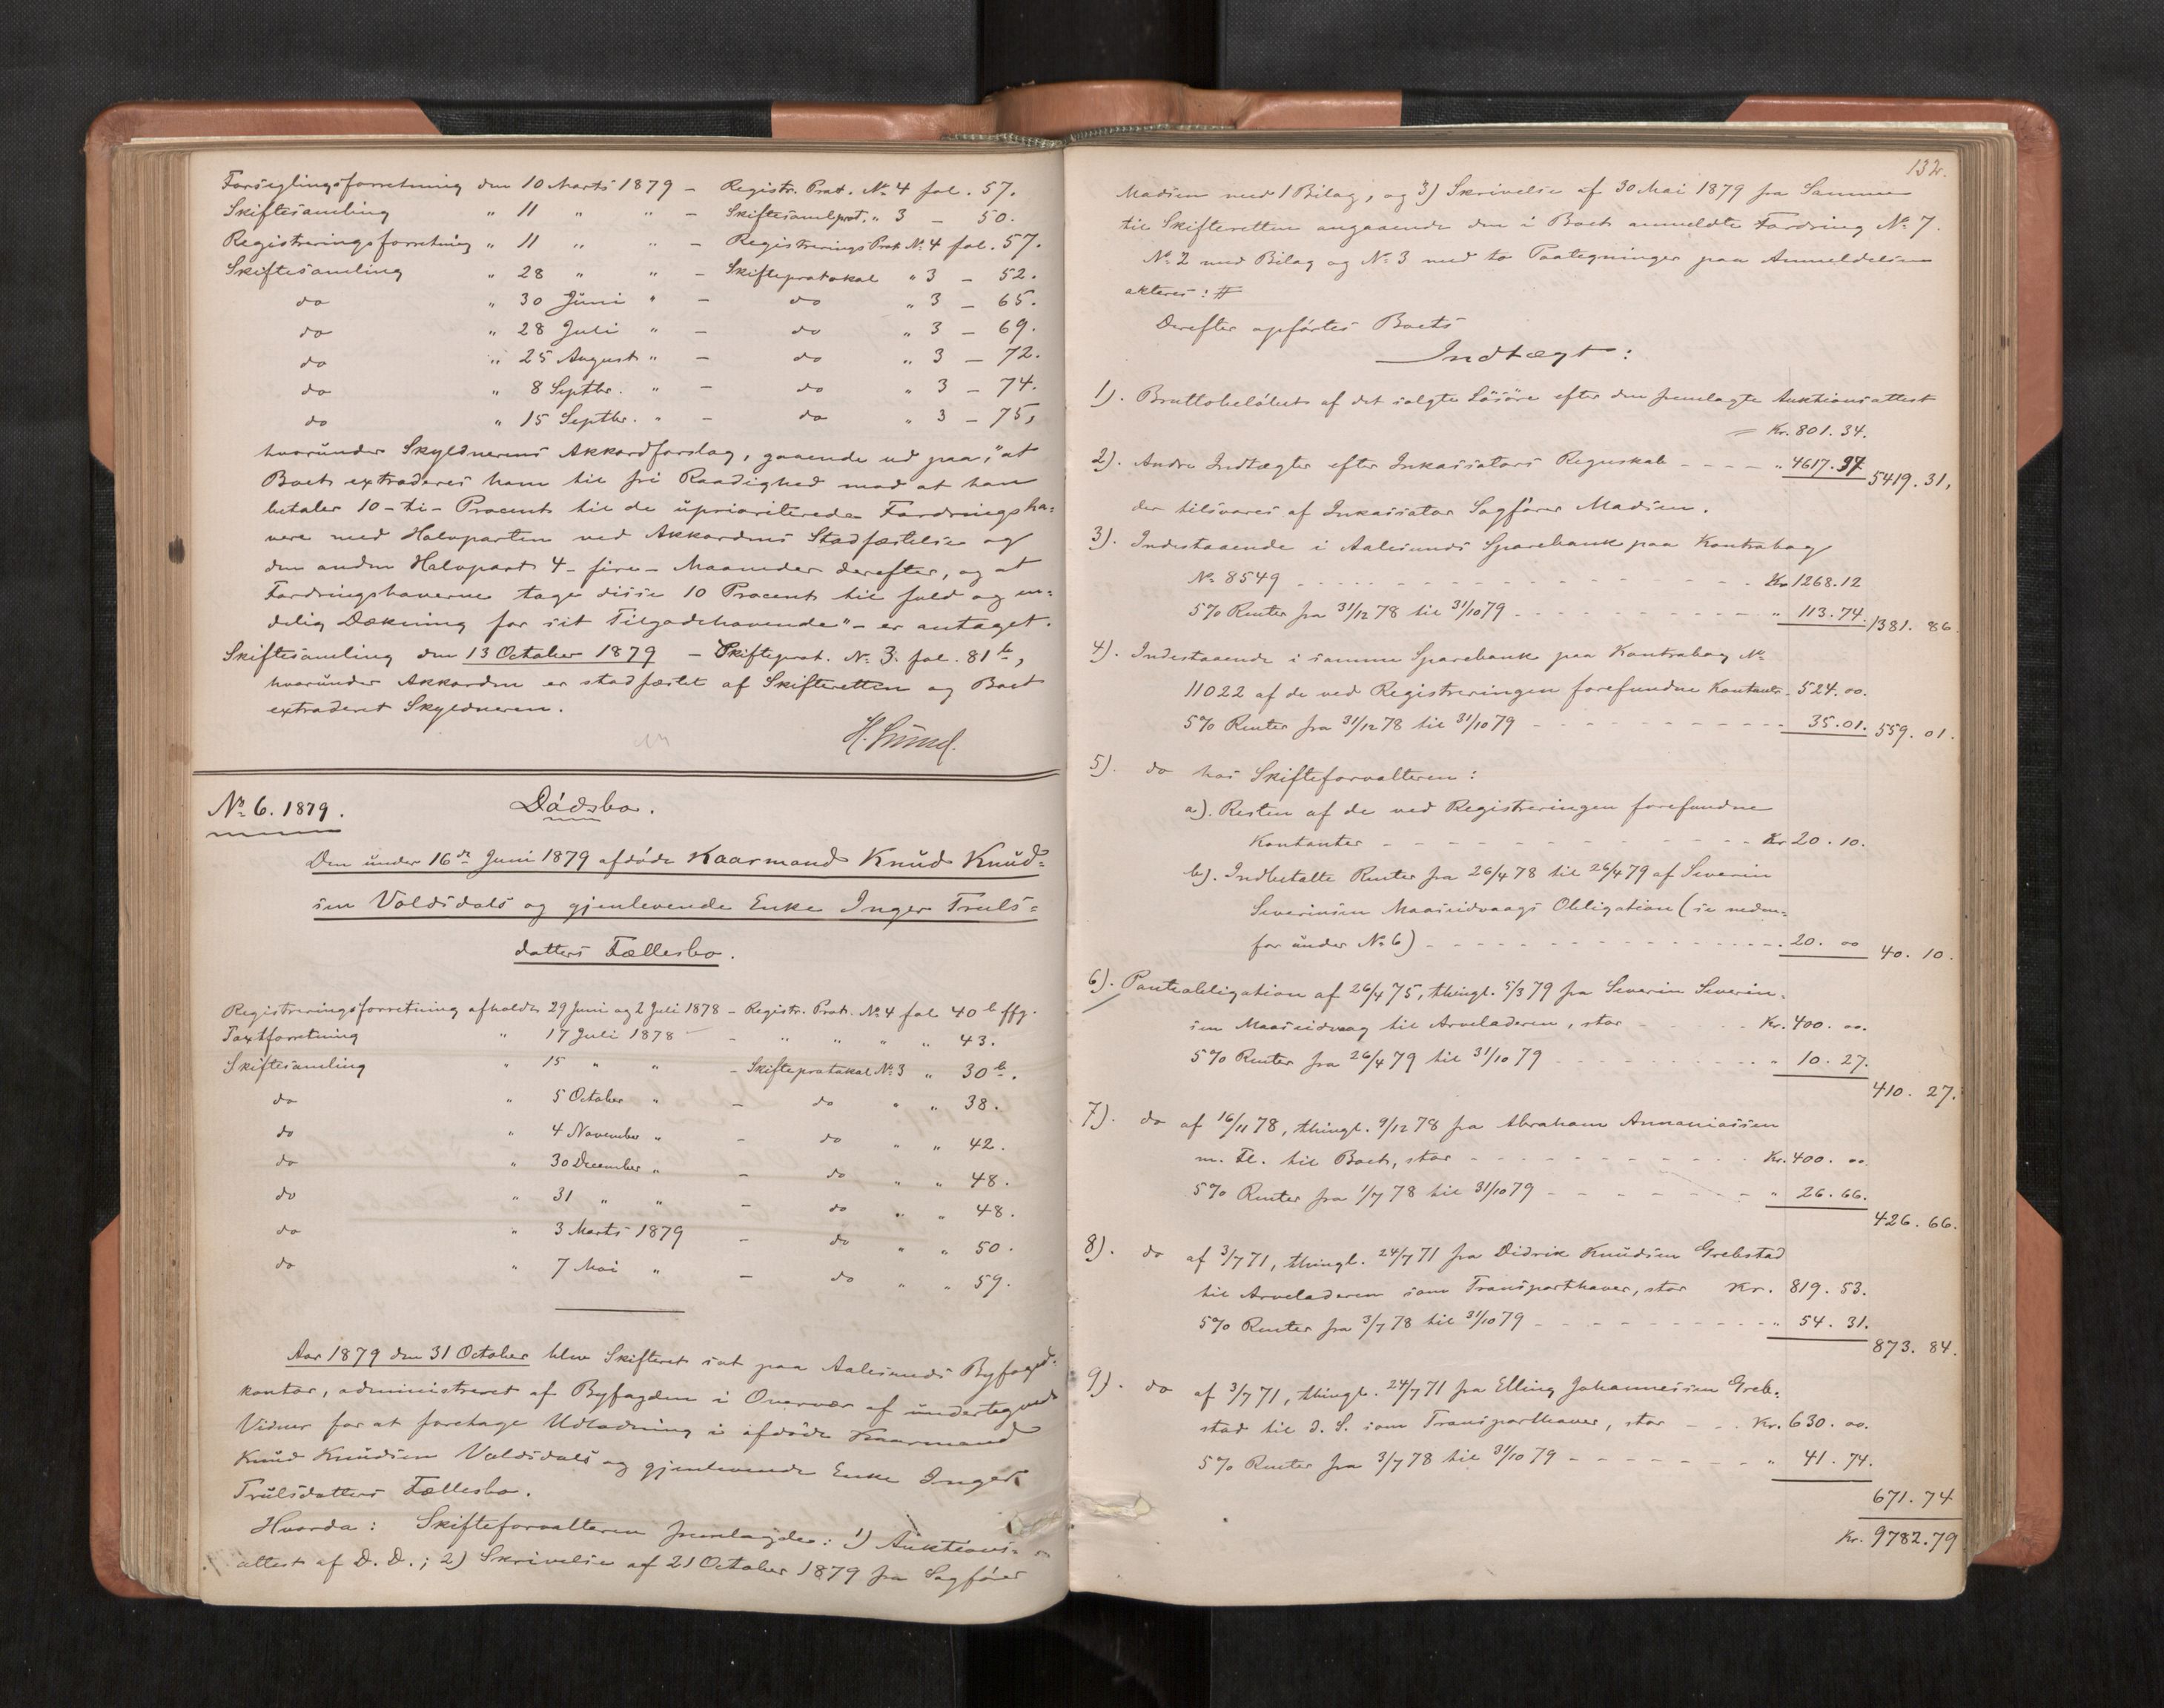 Forseglingsforretning den 10 Marts 1879 – Registr. Prot. № 4 fol. 57.
Skiftesamling " 11 " " – Skiftesamlprot. " 3 – 50.
Registreringsforretning " 11 " " – Registrerings Prot № 4 fol. 57.
Skiftesamling " 28 " " – Skifteprotokol " 3 – 52.
do " 30 Juni " – do " 3 – 65.
do " 28 Juli " – do " 3 – 69.
do " 25 August " – do " 3 – 72.
do " 8 Septbr. " – do " 3 – 74.
do " 15 Septbr. " – do " 3 – 75,
hvorunder Skyldnerens Akkordforslag, gaaende ud paa, "at
Boet extraderes ham til fri Raadighed mod at han
betaler 10 - ti - Procent til de uprioriterede Fordringsha-
vere med Halvparten ved Akkordens Stadfæstelse og
den anden Halvpart 4 - fire - Maaneder derefter, og at
Fordringshaverne tage disse 10 Procent til fuld og en-
delig Dækning for sit Tilgodehavende" – er antaget.
Skiftesamling den 13 October 1879 – Skifteprot. № 3. fol. 81 b,
hvorunder Akkorden er stadfæstet af Skifteretten og Boet
extraderet Skyldneren.
№ 6. 1879. Dödsbo.
Den under 16de Juni 1879 afdöde Kaarmand Knud Knud-
sen Valdsdals og gjenlevende Enke Inger Truls-
datters Fællesbo.
Registreringsforretning afholdt 29 Juni og 2 Juli 1878 – Registr. Prot. № 4 fol 40 b ffg.
Taxtforretning " 17 Juli 1878 – " " " " 43.
Skiftesamling " 15 " " – Skifteprotokol № 3 " 30 b.
do " 5 October " – do " " 38.
do " 4 November " – do " " 42.
do " 30 December " – do " " 48.
do " 31 " " – do " " 48.
do " 3 Marts 1879 – do " " 50.
do " 7 Mai " – do " " 59.
Aar 1879 den 31 October blev Skifteret sat paa Aalesunds Byfoged-
kontor, administreret af Byfogden i Overvær af undertegnede
Vidner for at foretage Udlodning i afdöde Kaarmand
Knud Knudsen Valdsdals og gjenlevende Enke Inger
Trulsdatters Fællesbo.
Hvorda: Skifteforvalteren fremlagde: 1) Auktions-
attest af D. D.; 2) Skrivelse af 21 October 1879 fra Sagförer
132.
Madsen med 1 Bilag, og 3) Skrivelse af 30 Mai 1879 fra Samme
til Skifteretten angaaende den i Boet anmeldte Fordring № 7.
№ 2 med Bilag og № 3 med to Paategninger paa Anmeldelsen
akteres: #
Derefter opførtes Boets
Indtægt:
1). Bruttobelöbet af det solgte Lösöre efter den fremlagte Auktionsattest
= Kr. 801. 34.
2). Andre Indtægter efter Inkassators Regnskab - - - - " 4617. 97 5419. 31,
der tilsvares af Inkassator Sagförer Madsen.
3). Indestaaende i Aalesunds Sparebank paa Kontrabog
№ 8549 - - - - Kr 1268. 12
5 % Renter fra 31/12 78 til 31/10 79 - - - - " 113. 74. 1381. 86.
4). Indestaaende i samme Sparebank paa Kontrabog №
11022 af de ved Registreringen forefundne Kontanter - 524. 00.
5 % Renter fra 31/12 78 til 31/10 79 - - - - 35. 01. 559. 01.
5). do hos Skifteforvalteren:
a). Resten af de ved Registreringen forefundne
Kontanter - - - - Kr 20. 10.
b). Indbetalte Renter fra 26/4 78 til 26/4 79 af Severin
Severinsen Maaseidvaags Obligation (se neden-
for under № 6) - - - - 20. 00 40. 10.
6). Panteobligation af 26/4 75, thingl. 5/3 79 fra Severin Severin-
sen Maaseidvaag til Arveladeren, stor - - Kr. 400. 00.
5 % Renter fra 26/4 79 til 31/10 79 - - - - " 10. 27.
410. 27.
7). do af 16/11 78, thingl. 9/12 78 fra Abraham Annaniassen
m. Fl. til Boet, stor - - - - Kr. 400. 00.
5 % Renter fra 1/7 78 til 31/10 79 - - - - " 26. 66.
426. 66.
8). do af 3/7 71, thingl. 24/7 71 fra Didrik Knudsen Grebstad
til Arveladeren som Transporthaver, stor Kr. 819. 53.
5 % Renter fra 3/7 78 til 31/10 79 - - - - " 54. 31.
873. 84.
9). do af 3/7 71, thingl. 24/7 71 fra Elling Johannessen Greb-
stad til d. S. som Transporthaver, stor - - Kr. 630. 00.
5 % Renter fra 3/7 78 til 31/10 79 - - - - " 41. 74.
671. 74
Kr. 9782. 79